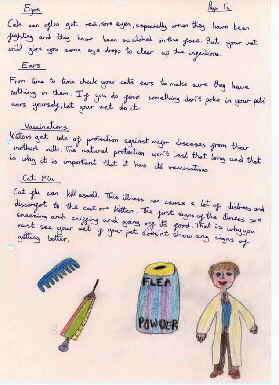 Eyes Page 12
Cats can often get red, sore eyes, especially when they have been
fighting and they have been scratched in the face. But your vet
will give you some eye drops to clear up the infections.
Ears
From time to time check your cats ears to make sure they have
nothing in them. If you do find something don't poke in your pets
ears yourself, let your vet do it.
Vaccinations
Kittens get lots of protection against major diseases from their
mothers milk. The natural protection won't last that long and that
is why it is important that it has its vaccinations
Cat Flu
Cat flu can kill small. This illness can cause a lot of distress and
discomfort to the cat or kitten. The first signs of the illness are
sneezing and going off its food. That is why you
must see your vet if your pet doesn't show any signs of
getting better.
FLEA
POWDER